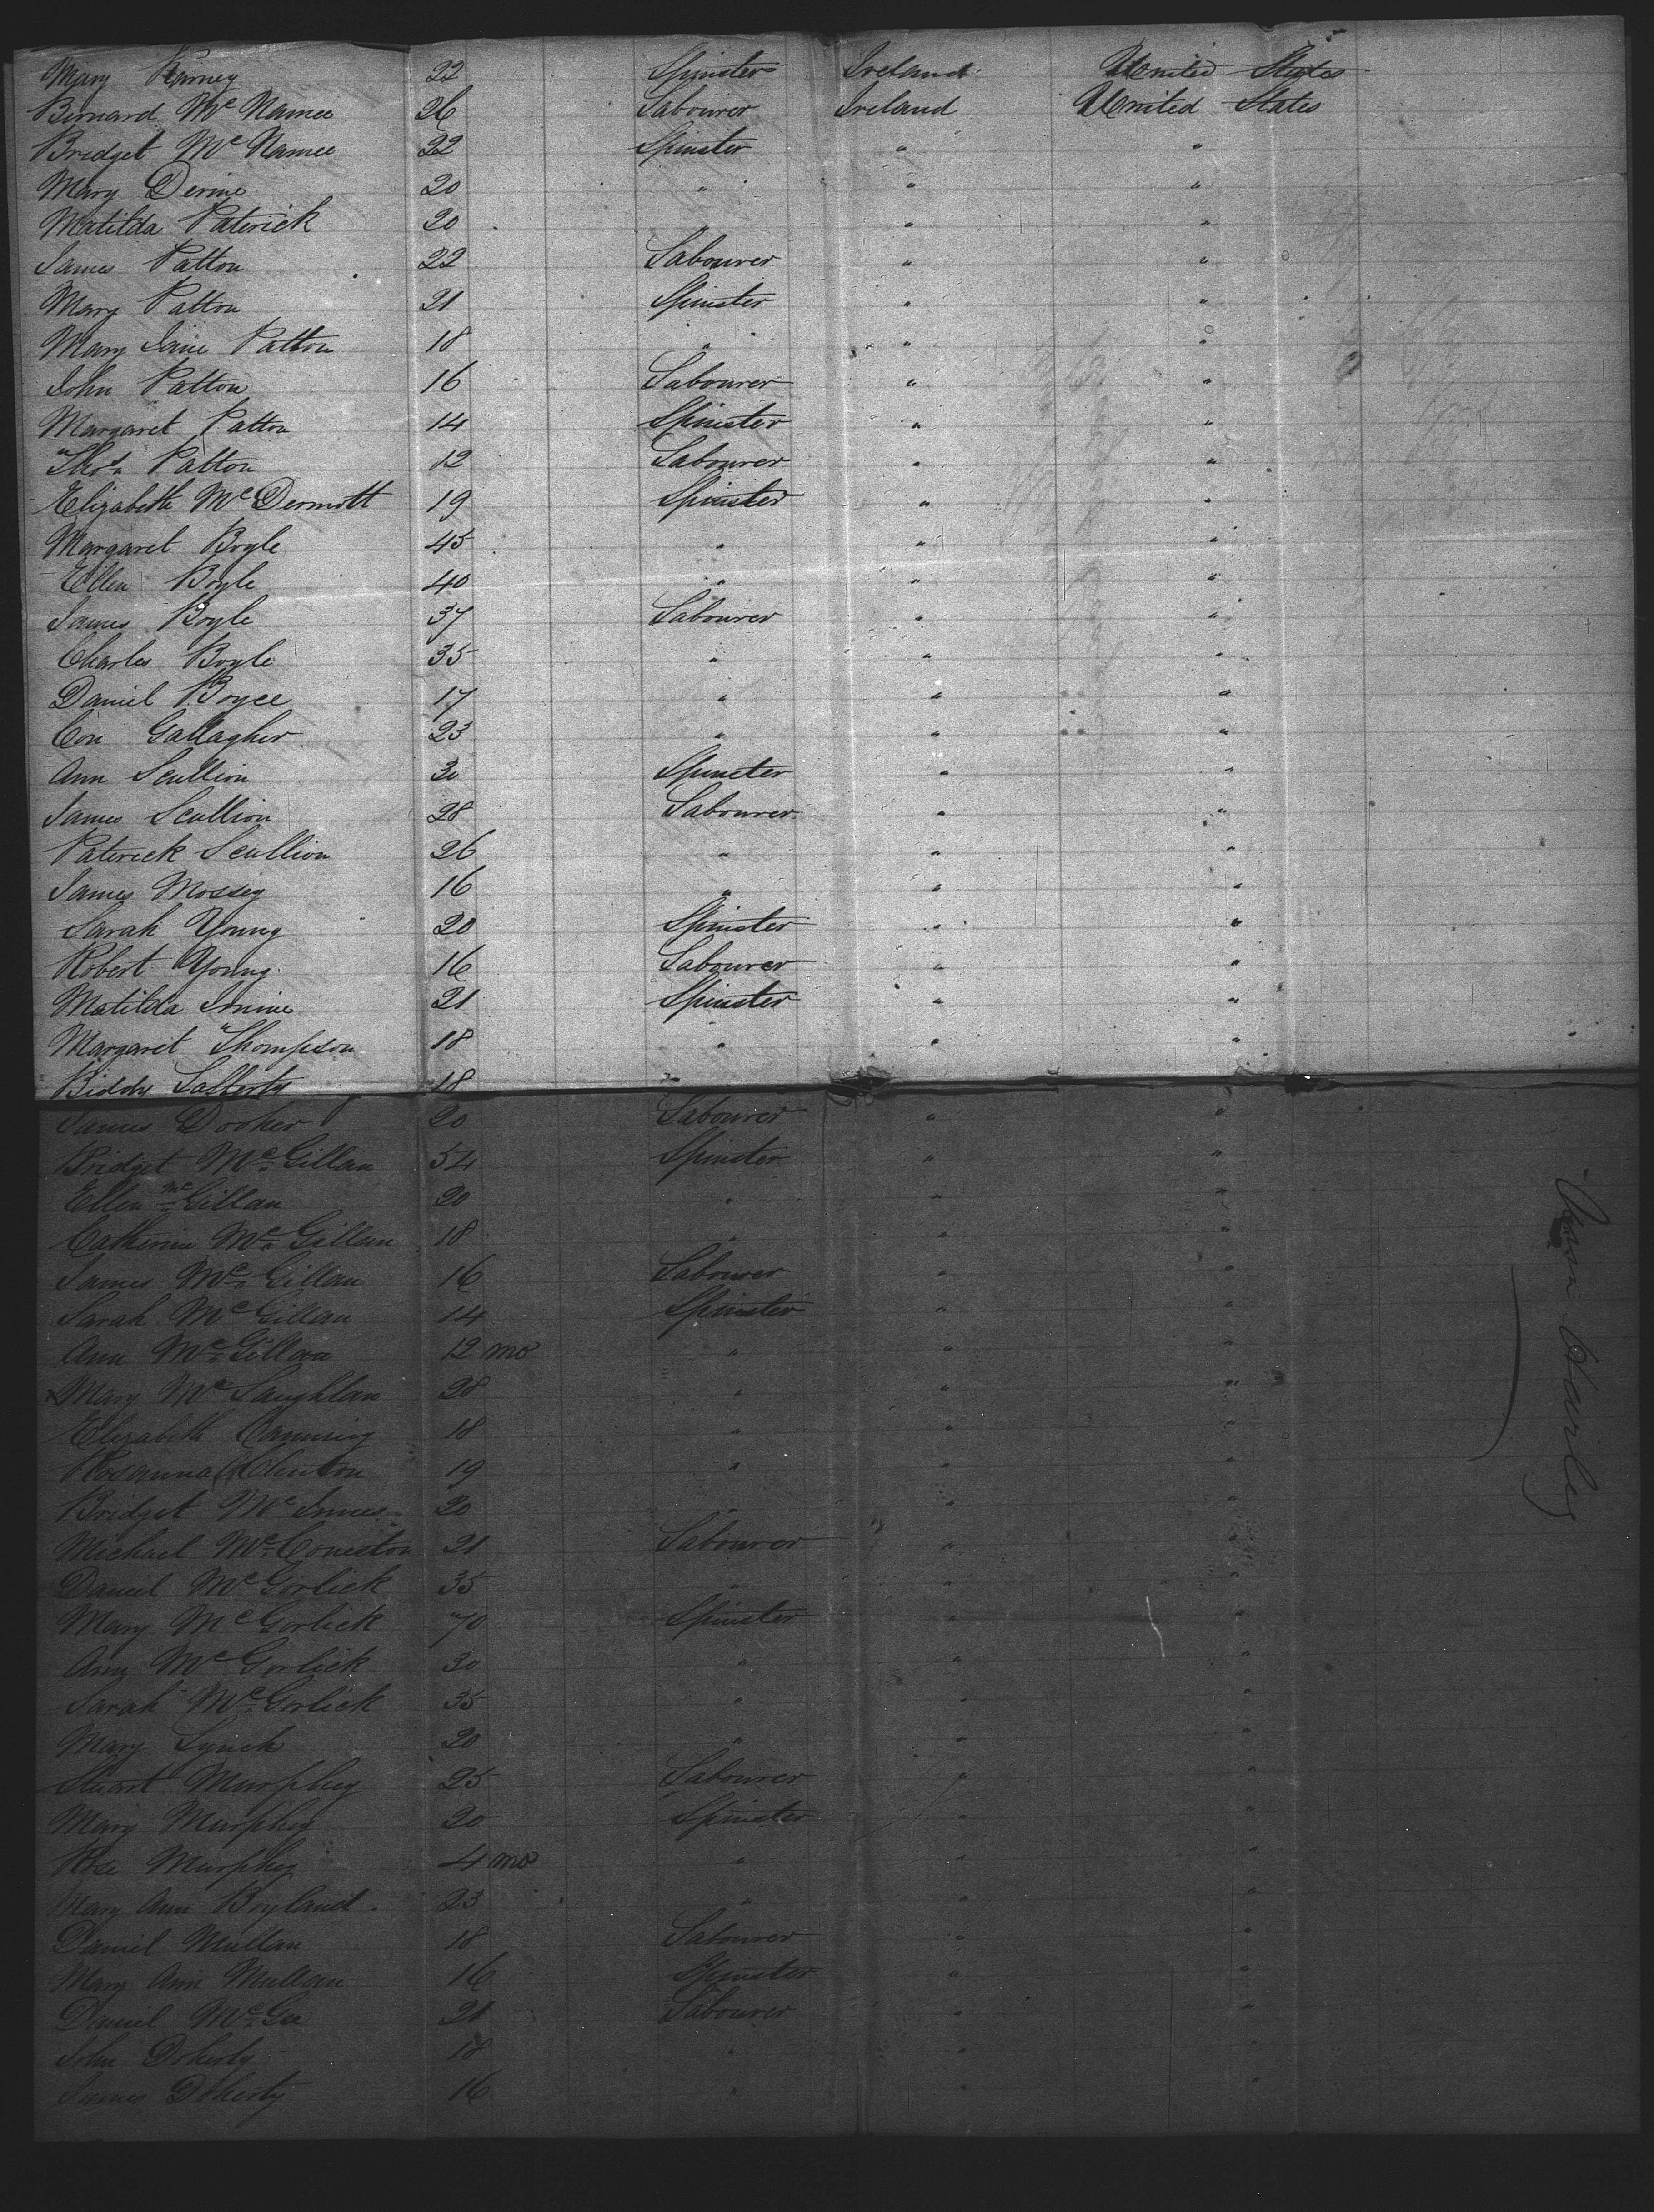 Mary Kearney 22 Spinster Ireland United States
Bernard McNamee 26 Labourer Ireland United States
Bridget McNamee 22 Spinster " "
Mary Devine 20 " " "
Matilda Paterick 20 " "
James Patton 22 Labourer " "
Mary Patton 21 Spinster " "
Mary Jane Patton 18 " " "
John Patton 16 Labourer " "
Margaret Patton 14 Spinster " "
Thos Patton 12 Labourer " "
Elizabeth McDermott 19 Spinster " "
Margaret Boyle 45 " " "
Ellen Boyle 40 " " "
James Boyle 37 Labourer " "
Charles Boyle 35 " " "
Daniel Boyce 17 " " "
Con Gallagher 23 " " "
Ann Scullion 30 Spinster " "
James Scullion 28 Labourer " "
Paterick Scullion 26 " " "
James Mossey 16 " " "
Sarah Young 20 Spinster " "
Robert Young 16 Labourer " "
Matilda Irvine 21 Spinster " "
Margaret Thompson 18 " " "
Biddy Lafferty 18
James Dooher 20 Labourer " "
Bridget McGillan 54 Spinster " "
Ellen McGillan 20 " " "
Catherine McGillan 18 " " "
James McGillan 16 Labourer " "
Sarah McGillan 14 Spinster " "
Ann McGillan 12 mo " " "
Mary McLaughlan 28 " " "
Elizabeth Canning 18 " " "
Rosanna Clinton 19 " " "
Bridget McInnes 20 " " "
Michael McConeston 21 Labourer " "
Daniel McGorlick 35 " " "
Mary McGorlick 70 Spinster " "
Ann McGorlick 30 " " "
Sarah McGorlick 35 " " "
Mary Lynch 20 " " "
Stuart Murphey 25 Labourer " "
Mary Murphey 20 Spinster " "
Rose Murphey 4 mo " " "
Mary Ann Boyland 23 " " "
Daniel Mullan 18 Labourer " "
Mary Ann Mullan 16 Spinster " "
Daniel McGee 21 Labourer " "
John Doherty 18 " " "
James Doherty 16 " " "